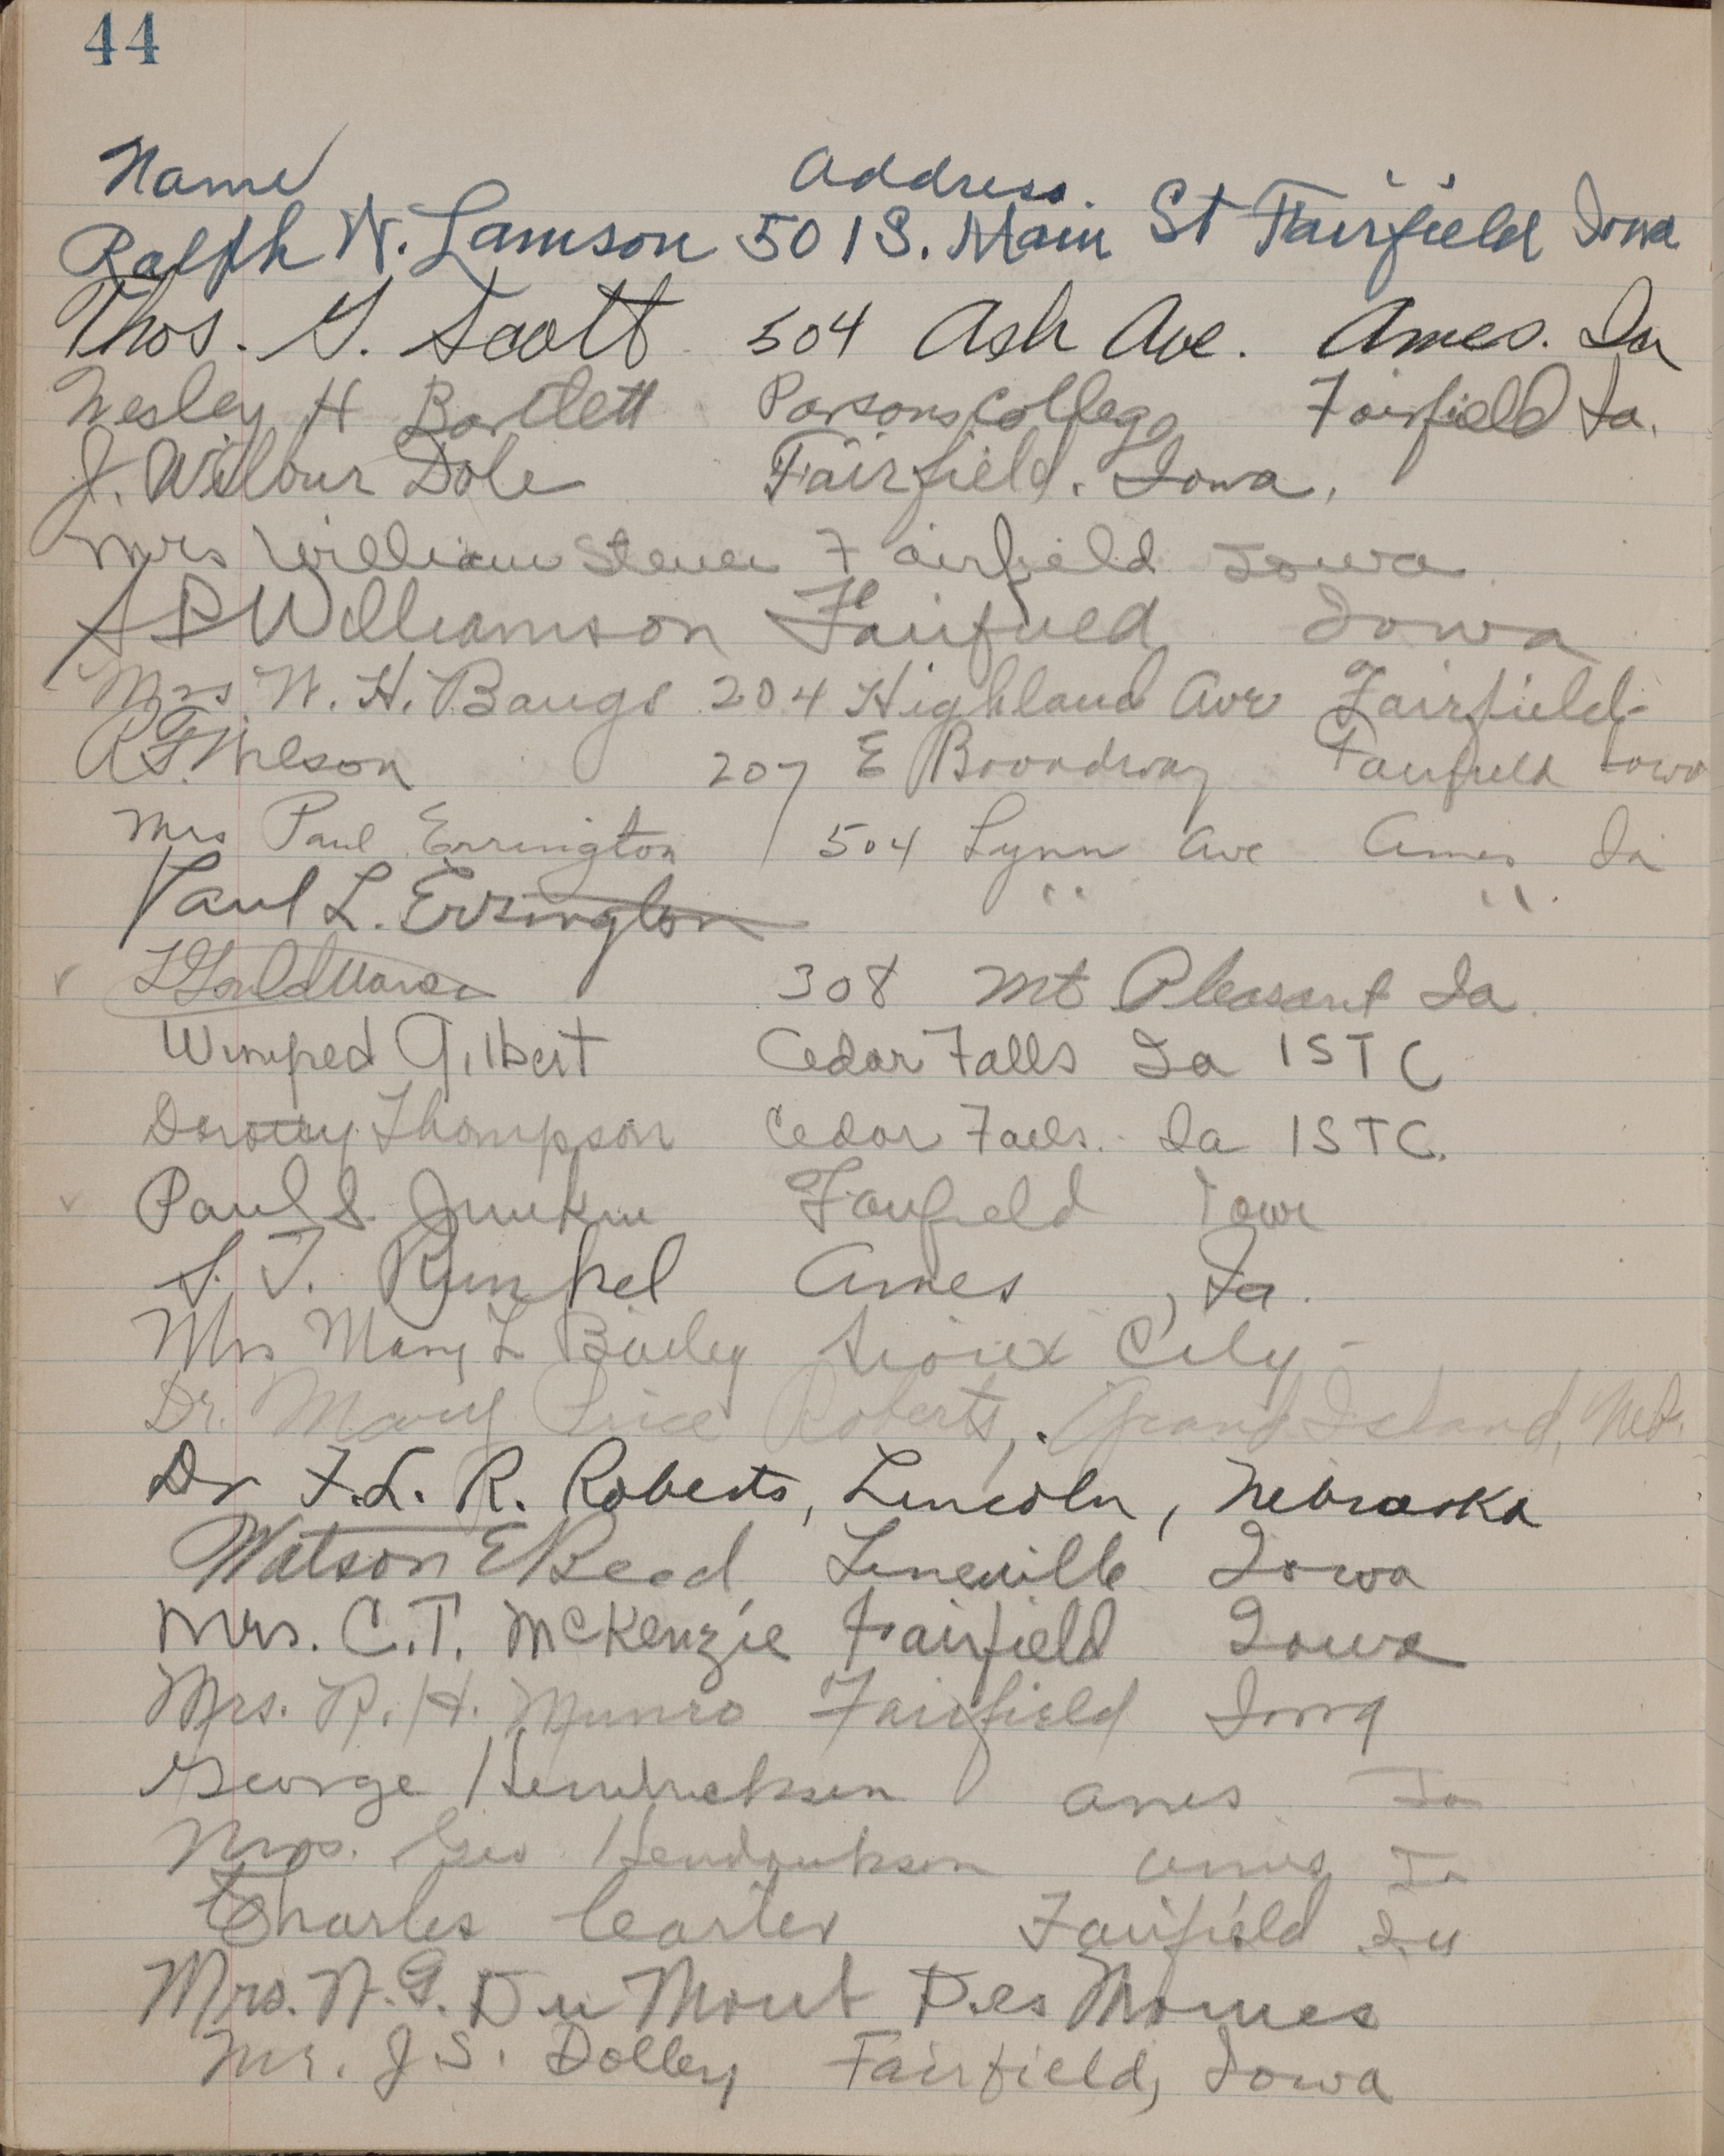 44
Name Address.
Ralph W. Lamson 501 S. Main St Fairfield Iowa
Thos. G. Scott 504 Ash Ave. Ames. Ia
Wesley H Bartlett Parsons College Fairfield Ia.
J. Wilbur Dole Fairfield. Iowa.
Mrs William Fairfield Iowa
Williamson Fairfield Iowa
Mrs W. H. Bangs 204 Highland Ave Fairfield-
207 E Broadway Fairfield Iowa
Mrs Paul Errington 504 Lynn Ave Ames Ia
Paul L. Errington " ".
308 Mt Pleasant Ia.
Winifred Gilbert Cedar Falls Ia ISTC
Dorothy Thompson Cedar Falls. Ia ISTC.
Paul S. Junkin Fairfield Iowa
S. T. Runkel Ames, Ia.
Mrs Mary L Bailey Sioux City-
Dr. Mary Price Roberts, Grand Island, Neb.
Dr F. L. R. Roberts, Lincoln, Nebraska
Watson E Reed Lineville Iowa
Mrs. C.T. McKenzie Fairfield Iowa
Mrs. R. H. Munro Fairfield Iowa
George Hendrickson Ames Ia
Mrs. Geo Hendrickson Ames Ia
Charles Carter Fairfield Ia
Mrs. W. G. Du Mont Des Moines
Mr. J. S. Dolley Fairfield, Iowa